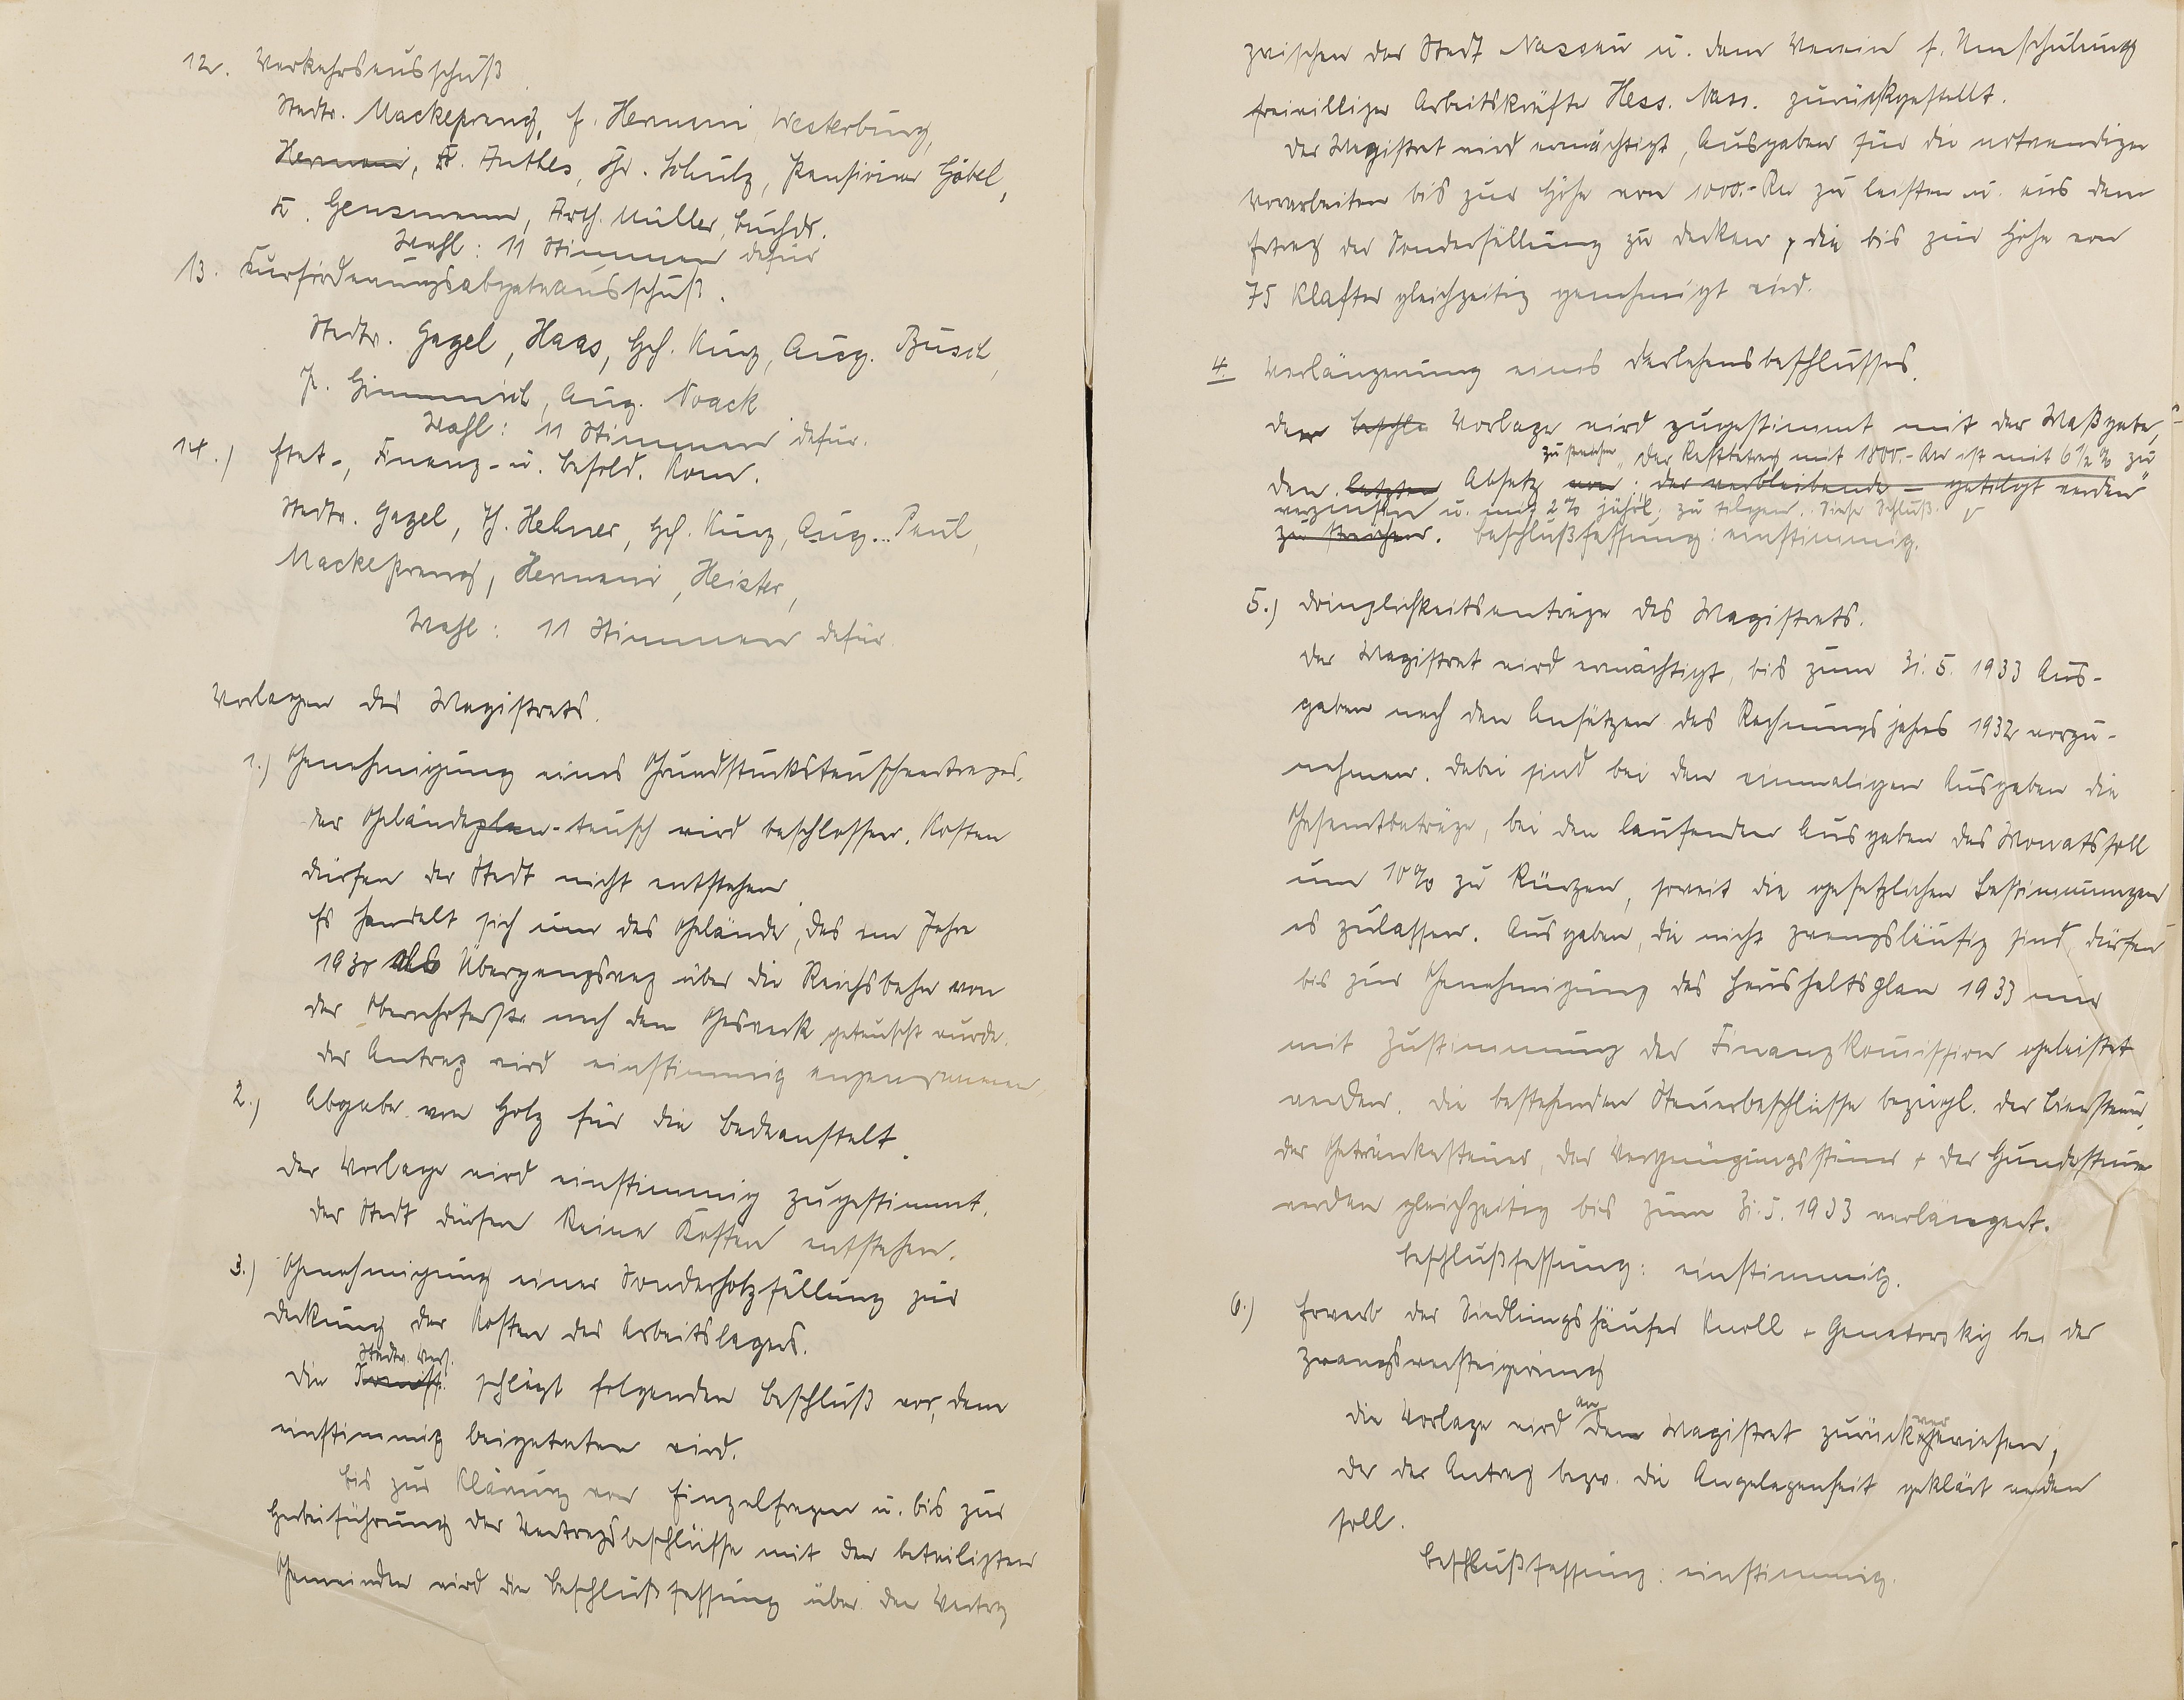 12. Verkehrsausschuß
Stadtv. Mackeprang, E. Hermani, Westerburg,
Hermani, K. Anthes, Chr. Schulz, Pensionär Göbel,
K. Gensmann, Arth. Müller, Buchdr.
Wahl: 11 Stimmen dafür
13. Kurförderungsabgabeausschuß.
Stadtv. Gagel, Haas, Hch. Kurz, Aug. Busch,
P. Gimmrich, Aug. Noack
Wahl: 11 Stimmen dafür.
14.) Etat-, Finanz- u. Besold. Kom.
Stadtv. Gagel, Th. Hehner, Hch. Kurz, Aug. Paul,
Mackeprang, Hermani, Heister,
Wahl: 11 Stimmen dafür
Vorlagen des Magistrats.
1.) Genehmigung eines Grundstückstauschvertrages.
Der Geländeplan-tausch wird beschlossen. Kosten
dürfen der Stadt nicht entstehen.
Es handelt sich um das Gelände, das im Jahre
1930 als Übergangsweg über die Reichsbahn von
der Obernhoferstr. nach dem Gaswerk getauscht wurde.
Der Antrag wird einstimmig angenommen
2.) Abgabe von Holz für die Badeanstalt.
Der Vorlage wird einstimmig zugestimmt.
Der Stadt dürfen keine Kosten entstehen.
3.) Genehmigung einer Sonderholzfällung zur
Deckung der Kosten des Arbeitslagers.
Stadtv. Vers.
Die schlägt folgenden Beschluß vor, dem
einstimmig beigetreten wird.
Bis zur Klärung von Einzelfragen u. bis zur
Herbeiführung der Vertragsbeschlüsse mit den beteiligten
Gemeinden wird die Beschlußfassung über den Vertrag
zwischen der Stadt Nassau u. dem Verein f. Umschulung
freiwilliger Arbeitskräfte Hess. Nass. zurückgestellt.
Der Magistrat wird ermächtigt, Ausgaben für die notwendigen
Vorarbeiten bis zur Höhe von 1000.- RM zu leisten u. aus dem
Ertrag der Sonderfällung zu decken, die bis zur Höhe von
75 Klafter gleichzeitig genehmigt wird.
4. Verlängerung eines Darlehensbeschlusses.
Der Beschlu Vorlage wird zugestimmt mit der Maßgabe,
zu streichen „Der Restbetrag mit 1800.- RM ist mit 6 1/2 % zu
den letzten Absatz von: der verbleibende - getilgt werden"
verzinsen u. mit 2% jährl. zu tilgen. Dieser Schluß.
zu streichen. Beschlußfassung: einstimmig.
5.) Dringlichkeitsanträge des Magistrats.
Der Magistrat wird ermächtigt, bis zum 31. 5. 1933 Aus-
gaben nach den Ansätzen des Rechnungsjahres 1932 vorzu-
nehmen. Dabei sind bei den einmaligen Ausgaben die
Gesamtbeträge, bei den laufenden Ausgaben das Monatssoll
um 10% zu kürzen, soweit die gesetzlichen Bestimmungen
es zulassen. Ausgaben, die nicht zwangsläufig sind, dürfen
bis zur Genehmigung des Haushaltsplan 1933 nur
mit Zustimmung der Finanzkomission geleistet
werden. Die bestehenden Steuerbeschlüsse bezügl. der Biersteuer,
der Getränkesteuer, der Vergnügungssteuer + der Hundesteuer
werden gleichzeitig bis zum 31. 5. 1933 verlängert.
Beschlußfassung: einstimmig.
6.) Erwerb der Siedlungshäuser Knoll + Genatowsky bei der
Zwangsversteigerung
Die Vorlage wird an den Magistrat zurückverwiesen,
da der Antrag bezw. die Angelegenheit geklärt werden
soll.
Beschlußfassung: einstimmig.